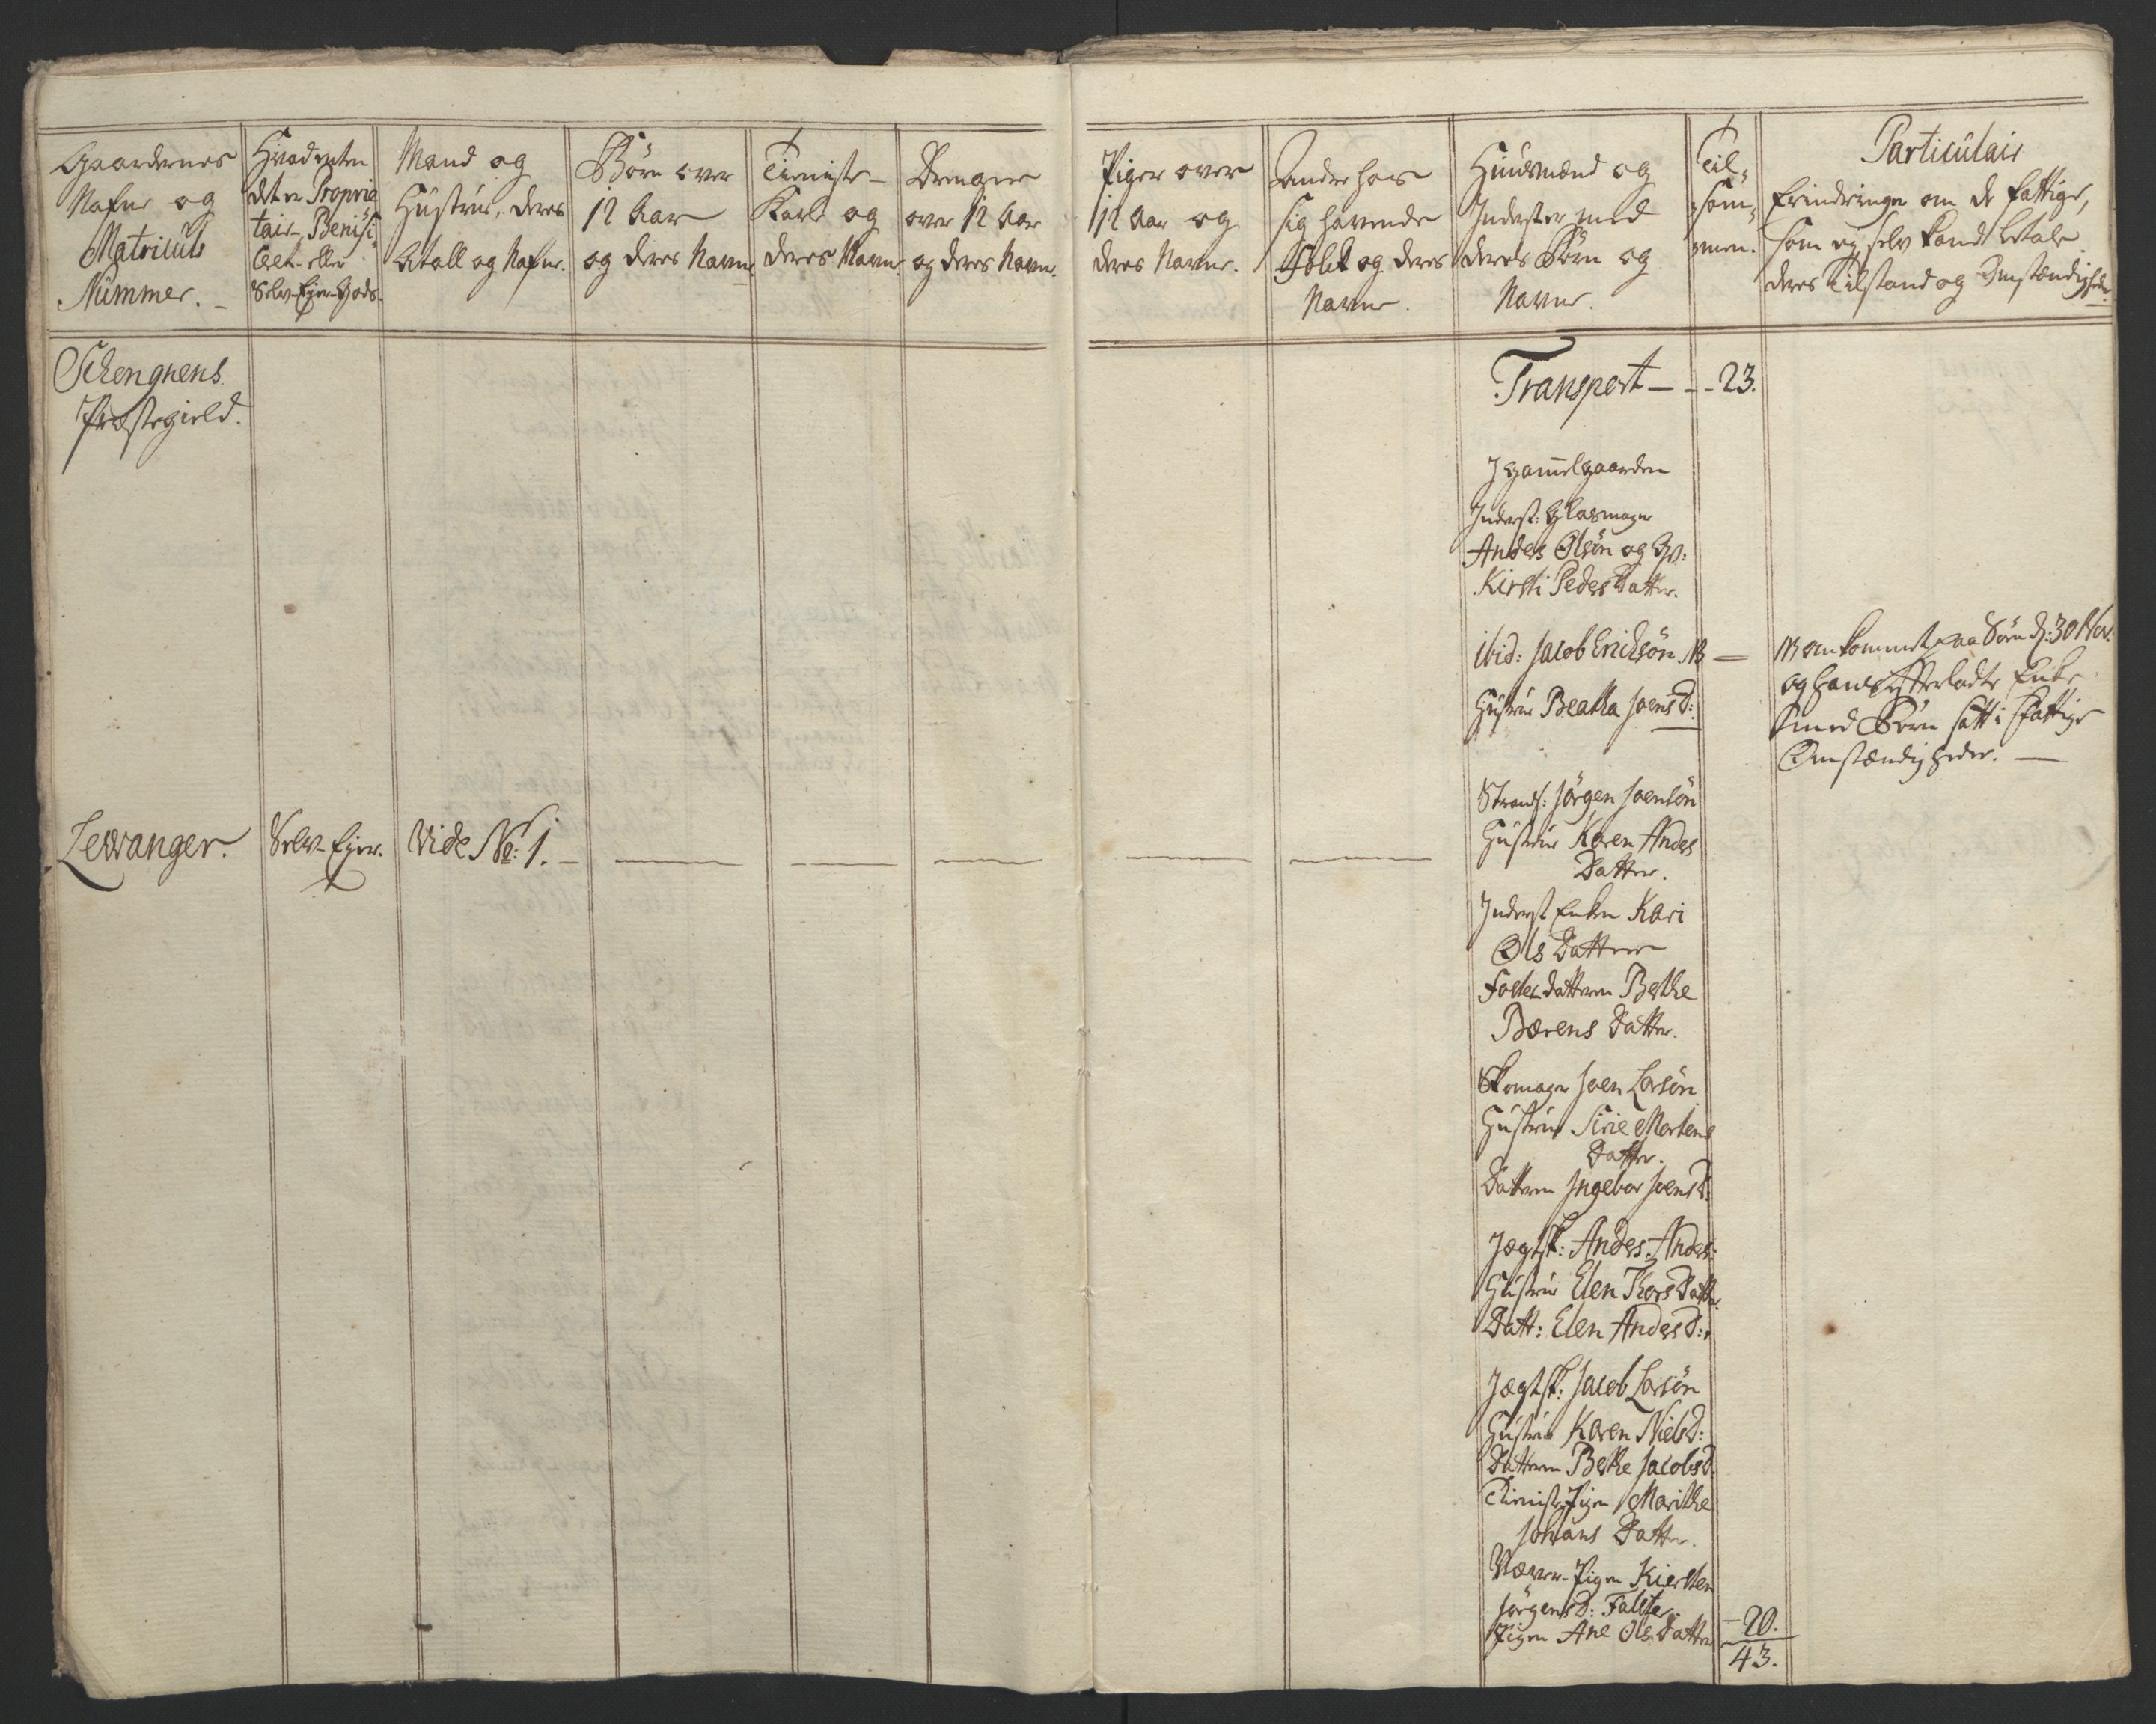 Gaardernes
Nafne og
Matriculs
Nummer.
Hvad enten
det er Proprie
tair-, Benifi-
cert- eller
Selv-Ejer-Gods.
Mand og
Hustrue, deres
Atall og Nafne.
Børn over
12 Aar
og deres Navne
Tieniste-
Karle og
deres Navne
Drenger
over 12 Aar
og deres Navne.
Piger over
12 Aar og
deres Navne.
Andre hos
sig havende
Folck og deres
Navne.
Huusmænd og
Inderster med
deres Børn og
Navne.
Til-
sam-
men.
Particulair
Erindringe om de fattige,
som ej selv kand betale
deres Tilstand og Omstændigheder.
Schongnens
Præstegield.
Transport - - 23.
J Gammelgaarden
Inderst: Glasmager
Anders Olsøn og Hst:
Kirsti PedersDatter.
ibid: Jacob Erichsøn NB —
Hustrue Beatha JoensD:
NB omkommet paa Søen d: 30 Nov:
og hands Efterladte Enke
med Børn satt i fattige
Omstændigheder. —
Levanger.
Selv-Ejer.
Vide No: 1.
Strands: Jørgen Joensøn
Hustrue Karen Anders
Datter.
Inderst Enken Kari
Ols Datter
Foster datteren Berthe
Bærens Datter.
Skomager Joen Larsøn
Hustrue Sirie Mortens
Datter.
Datteren Ingebor JoensD:
Jægtsk: Anders Anders:
Hustrue Elen ThorsDatter
Datt: Elen AndersD:
Jægtsk: Jacob Larsøn
Hustrue Karen NielsD:
Datteren Berthe JacobsD.
Tieniste Pigen Marithe
Johans Datter.
Væver-Pigen Kiersten
JørgensD: Falster
Pigen Ane Ols Datter
- 20.
43.